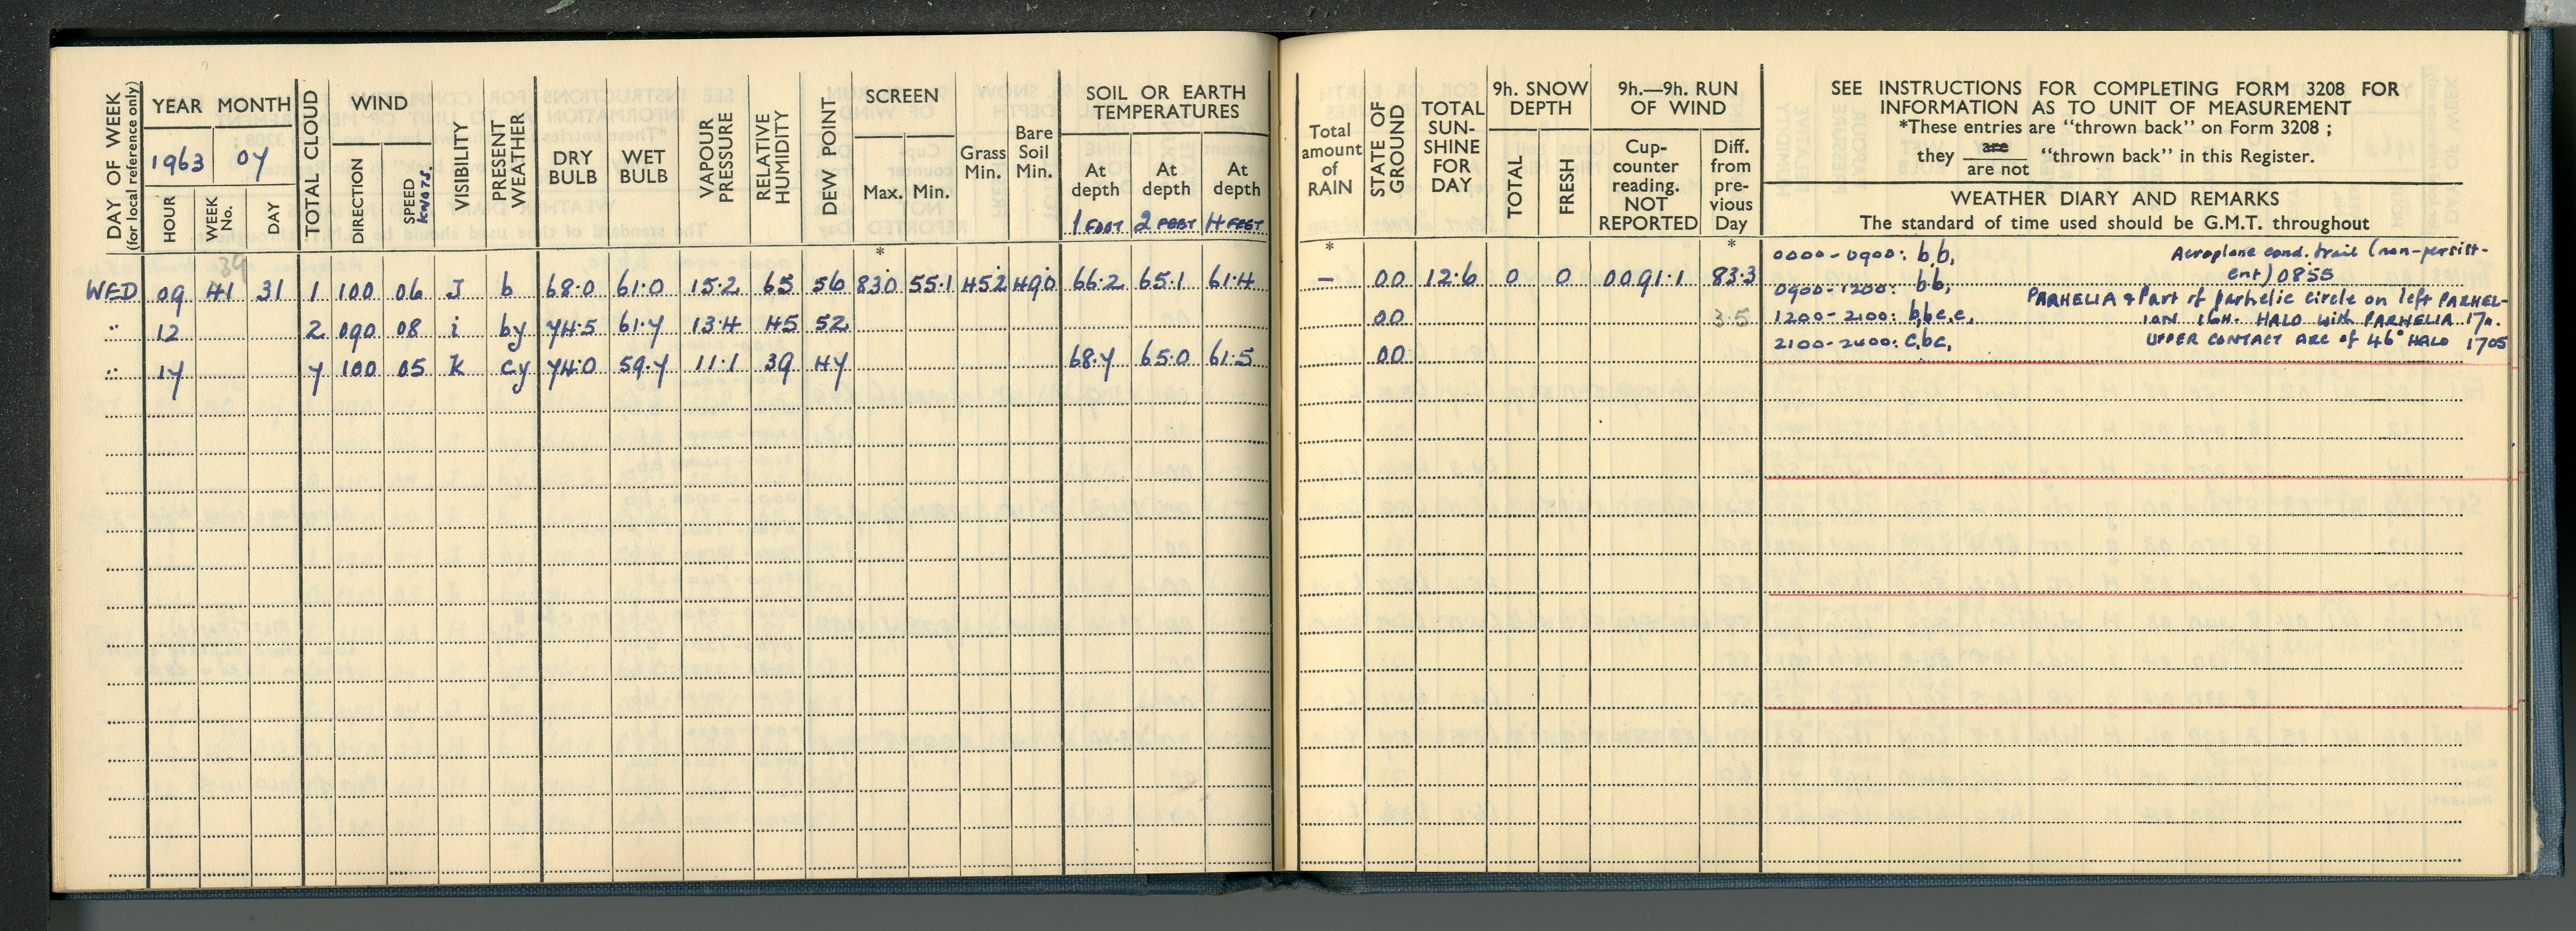 DAY OF WEEK
(for local reference only)
YEAR MONTH
1963 07
HOUR WEEK No. DAY
TOTAL CLOUD
WIND
DIRECTION SPEED KNOTS.
VISIBILITY
PRESENT WEATHER
DRY BULB WET BULB
VAPOUR PRESSURE
RELATIVE HUMIDITY
DEW POINT
SCREEN
Max. Min.
Grass Min.
Bare Soil Min.
SOIL OR EARTH
TEMPERATURES
At depth At depth At depth
1 FOOT 2 FEET 4 FEET
*
39
WED 09 41 31 1 100 06 J b 68.0 61.0 15.2 65 56 83.0 55.1 45.2 49.0 66.2 65.1 61.4
" 12 2 090 08 i by 74.5 61.7 13.4 45 52
" 17 7 100 05 K cy 74.0 59.7 11.1 39 47 68.7 65.0 61.5
Total amount of RAIN
STATE OF GROUND
TOTAL SUN-SHINE FOR DAY
9h. SNOW DEPTH
TOTAL FRESH
9h.—9h. RUN OF WIND
Cup-counter reading. NOT REPORTED
Diff. from pre-vious Day
SEE INSTRUCTIONS FOR COMPLETING FORM 3208 FOR
INFORMATION AS TO UNIT OF MEASUREMENT
*These entries are "thrown back" on Form 3208 ;
they are / are not "thrown back" in this Register.
WEATHER DIARY AND REMARKS
The standard of time used should be G.M.T. throughout
* *
– 00 12.6 0 0 0091.1 83.3
00 3.5
00
0000-0900: b,b, Aeroplane cond. trail (non-persist-
ent) 0855
0900-1200: b,b,
PARHELIA & Part of parhelic circle on left PARHEL-
1200-2100: b,bc,c, ION 16H. HALO with PARHELIA 17H.
2100-2400: c,bc, UPPER CONTACT ARC of 46° HALO 1705